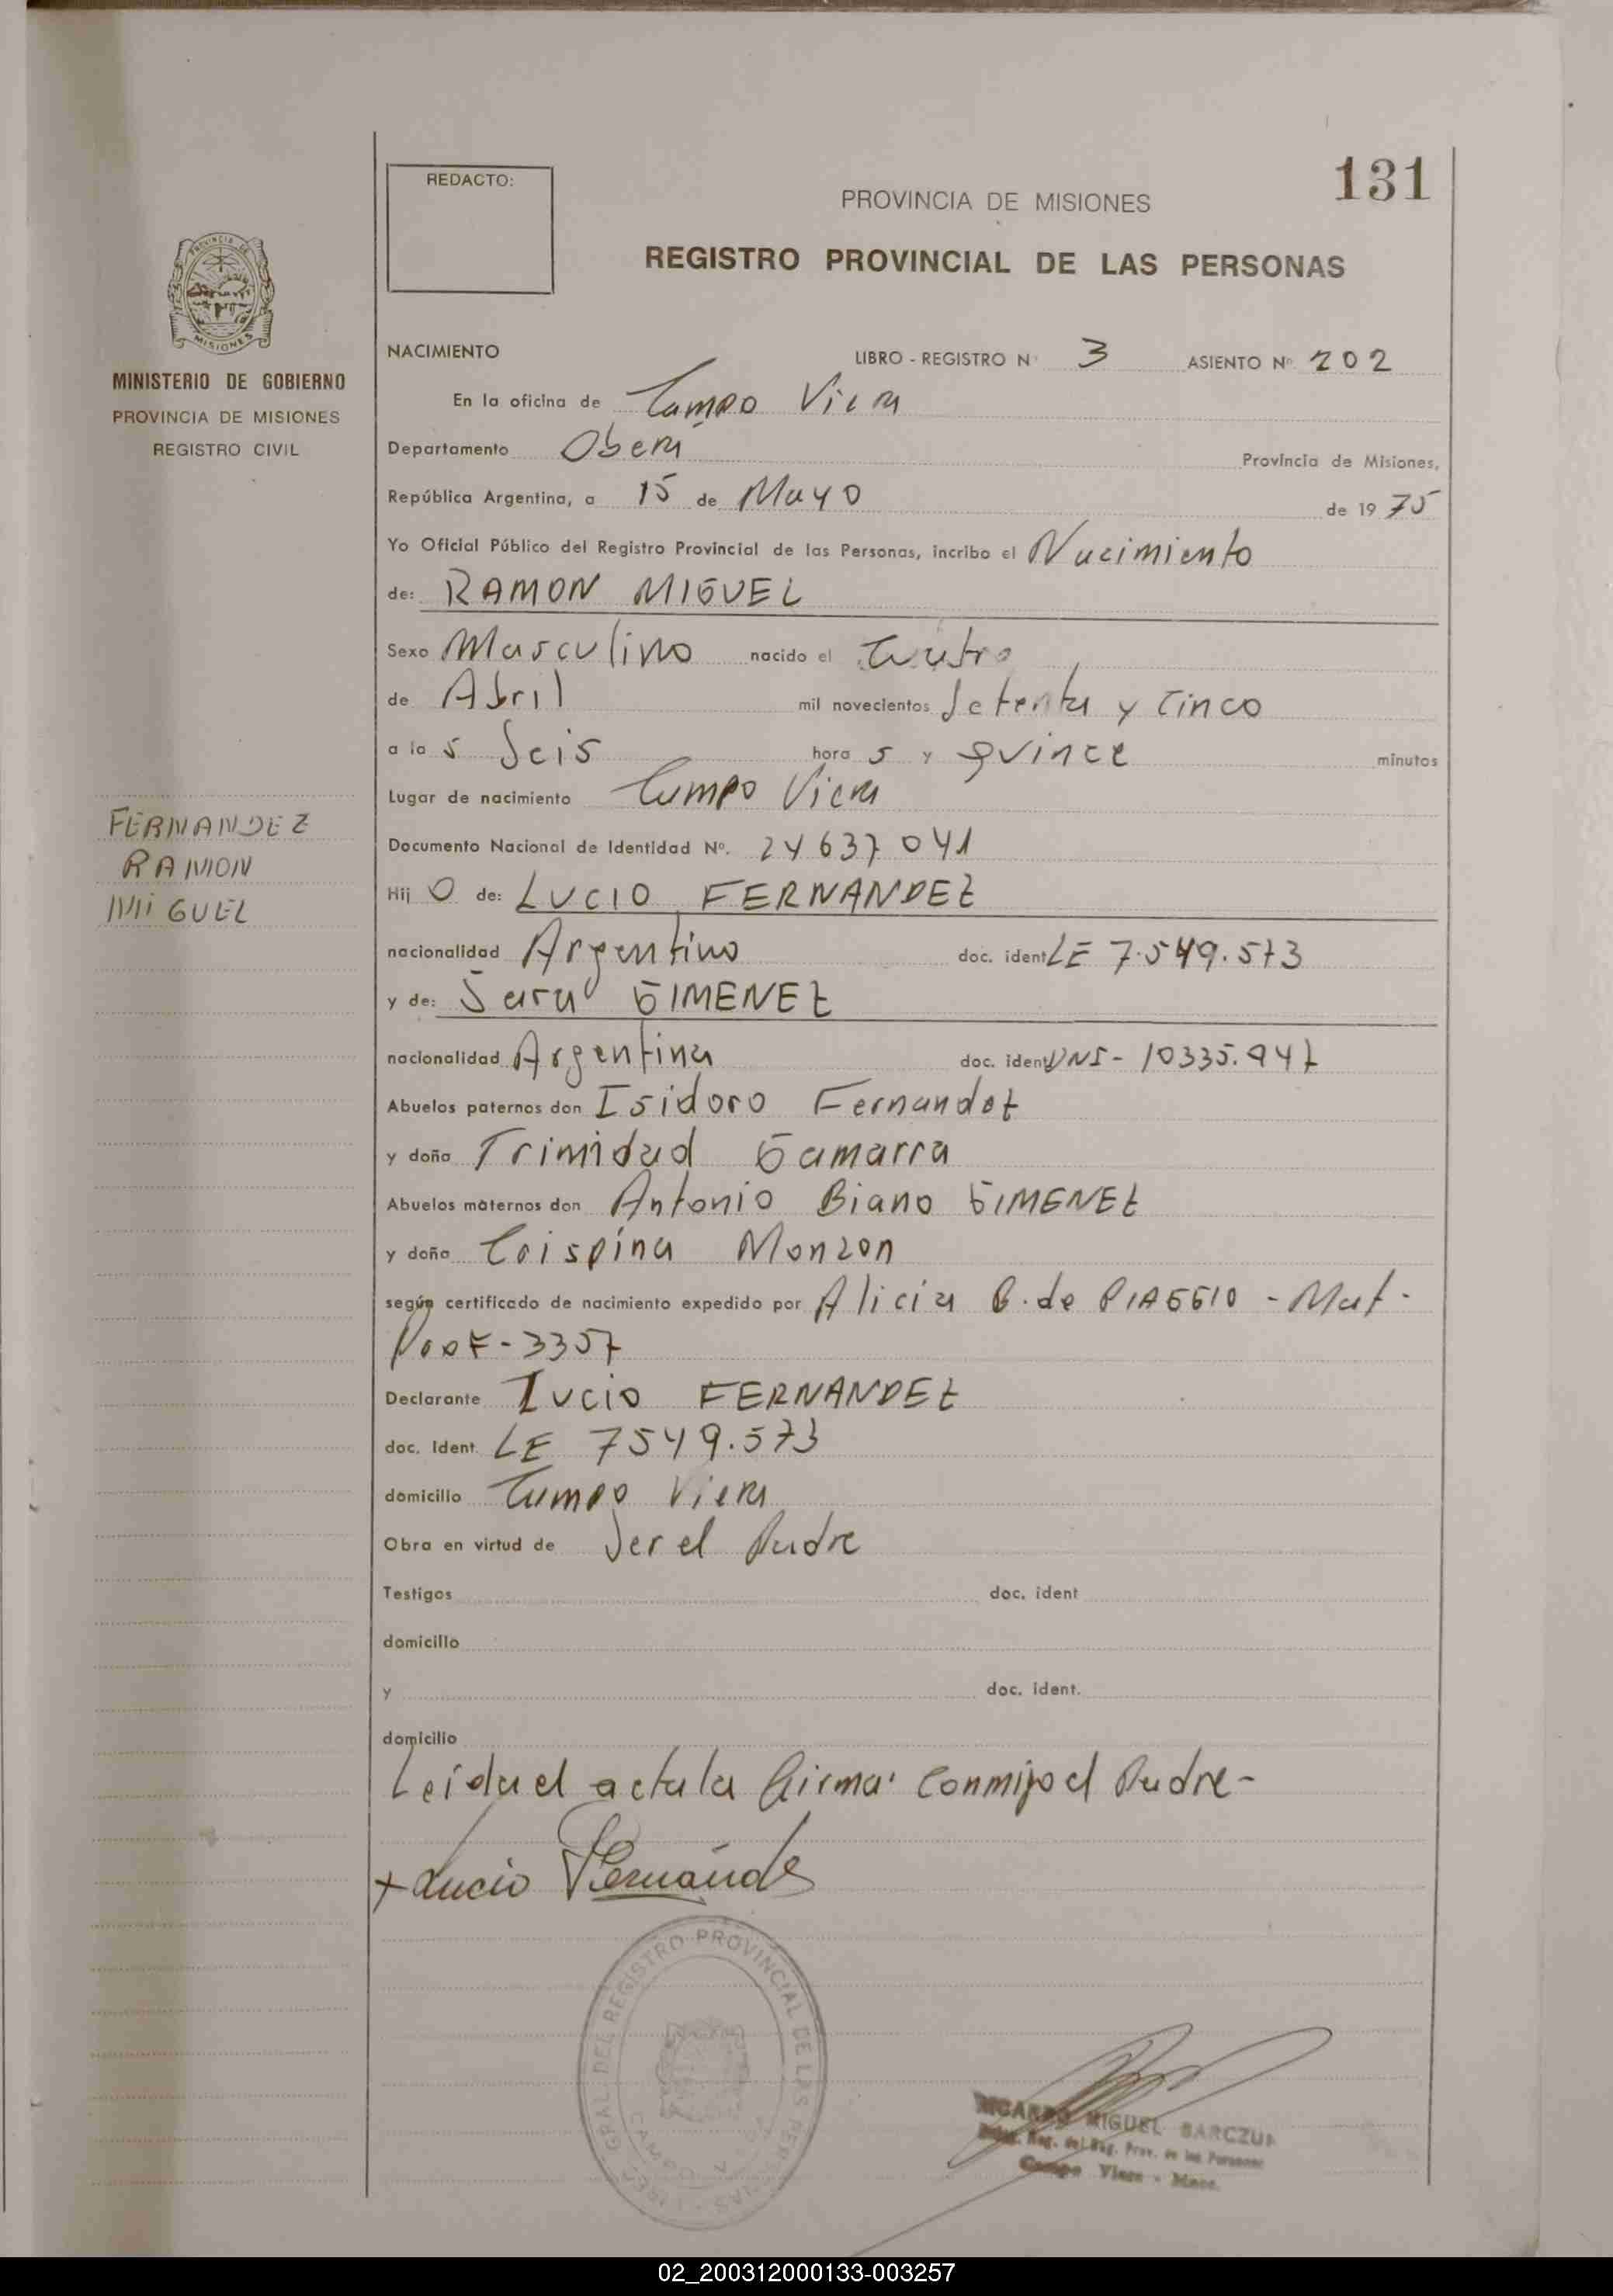 131
REDACTO:
PROVINCIA DE MISIONES
REGISTRO PROVINCIAL DE LAS PERSONAS
MINISTERIO DE GOBIERNO
PROVINCIA DE MISIONES
REGISTRO CIVIL
NACIMIENTO LIBRO - REGISTRO Nº 3 ASIENTO Nº 202
En la oficina de Campo Viera
Departamento Oberá Provincia de Misiones,
República Argentina, a 15 de Mayo de 1975
Yo Oficial Público del Registro Provincial de las Personas, incribo el Nacimiento
de: RAMON MIGUEL
Sexo Masculino nacido el Cuatro
de Abril mil novecientos Setenta y Cinco
a las Seis horas y Quince minutos
Lugar de nacimiento Campo Viera
FERNANDEZ
RAMON
MIGUEL
Documento Nacional de Identidad Nº. 24637041
Hijo de: LUCIO FERNANDEZ
nacionalidad Argentino doc. ident LE 7.549.573
y de: Sara GIMENEZ
nacionalidad Argentina doc. ident DNI - 10335.947
Abuelos paternos don Isidoro Fernandez
y doña Trinidad Gamarra
Abuelos maternos don Antonio Biano GIMENEZ
y doña Crispina Monzon
según certificado de nacimiento expedido por Alicia B. de PIAGGIO - Mat.
3357
Declarante Lucio FERNANDEZ
doc. Ident. LE 7549.573
domicilio Campo Viera
Obra en virtud de Ser el Padre
Testigos doc. ident
domicilio
y doc. ident.
domicilio
Leida el acta la firma conmigo el Padre -
+ Lucio Fernández
REGISTRO PROVINCIAL DE LAS PERSONAS
RICARDO MIGUEL BARCZUK
Reg. del Reg. Prov. de las Personas
Campo Viera - Mnes.
02_200312000133-003257